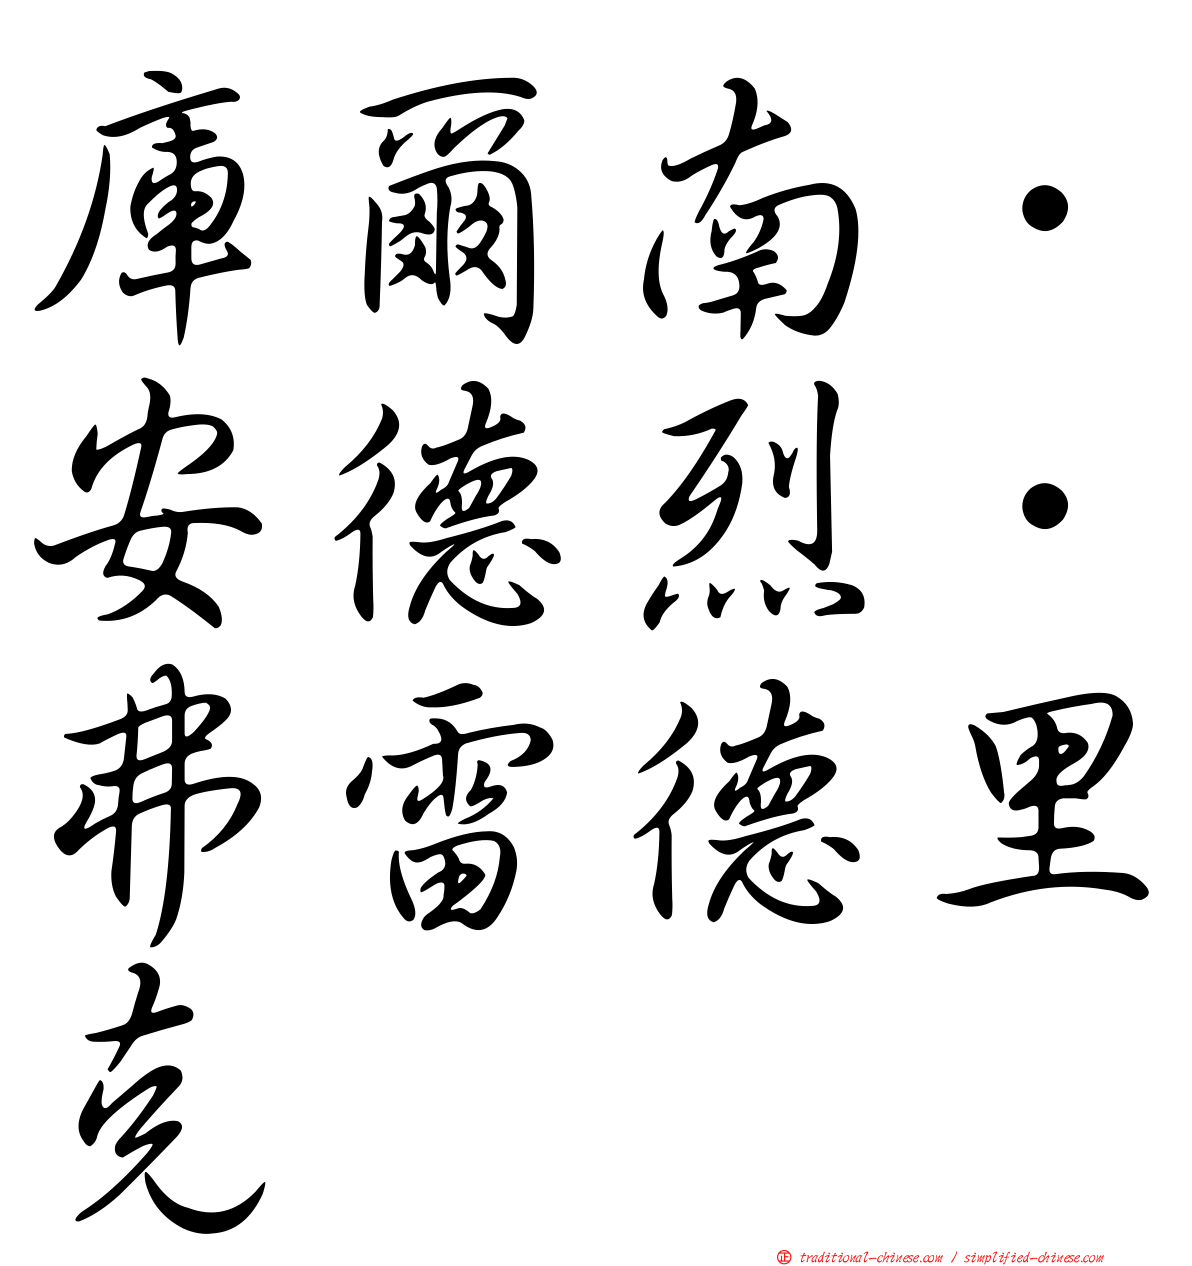 庫爾南·
安德烈·
弗雷德里
克
㊣ traditional-chinese.com / simplified-chinese.com